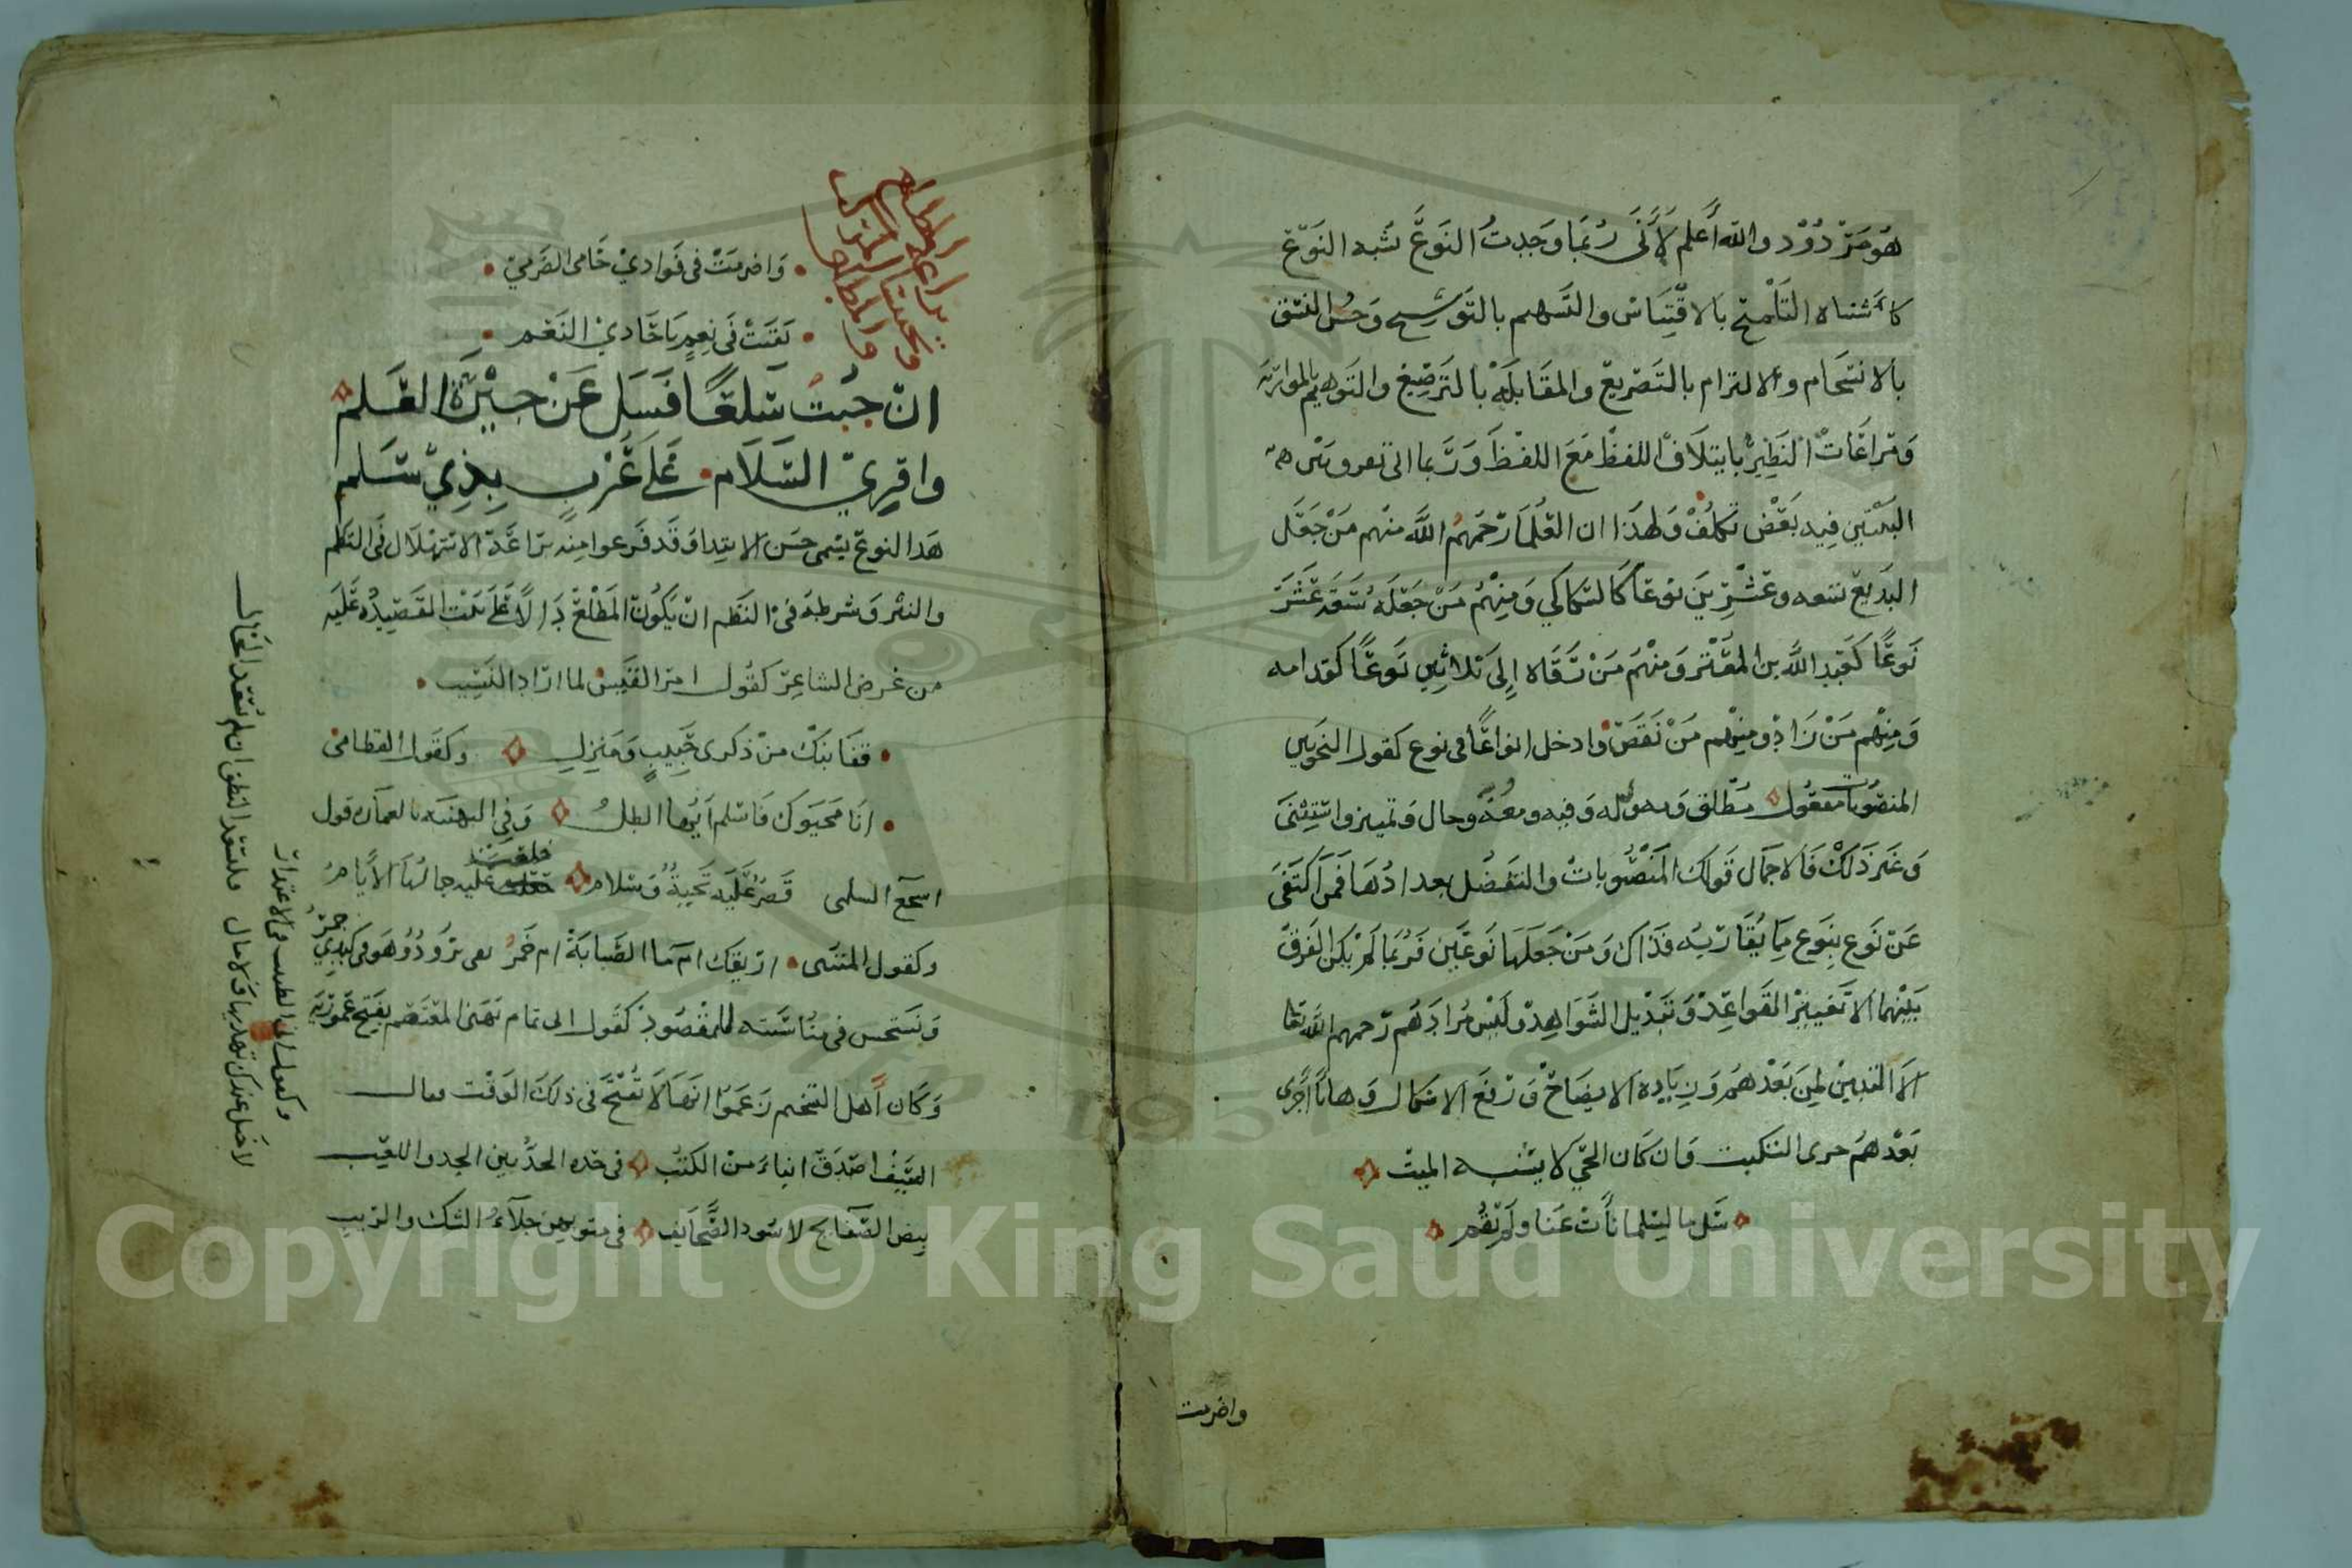 هو مردود والله أعلم لأنني ربما وجدت النوع شبه النوع
كاشتباه التلميح بالاقتباس والتسهيم بالتوشيح وحسن النسق
بالانسجام والالتزام بالتصريع والمقابلة بالترصيع والتوهيم بالمواربة
ومراعات النظير بايتلاف اللفظ مع اللفظ وربما اتى
البيتين فيه بعض تكلف ولهذا ان العلما رحمهم الله منهم من جعل
البديع تسعه وعشرين نوعا كالسكاكي ومنهم من جعله سبعة عشر
نوعًا كعبد الله بن المعتز ومنهم من رقاه إلى ثلاثين نوعًا كقدامه
ومنهم من زاد ومنهم من نقص وادخل انواعًا في نوع كقول النحويين
المنصوبات مفعول مطلق وبه وله وفيه ومعه وحال وتمييز واستثنى
وغير ذلك فالاجمال قولك المنصوبات والتفصيل بعدادها فمن اكتفى
عن نوع بنوع مما يقاربه فذاك ومن جعلها نوعين فربما لم يكن الفرق
بينهما الا تغيير القواعد وتبديل الشواهد وليس مرادهم رحمهم الله تعالى
الا التبيين لمن بعدهم وزيادة الايضاح ورفع الاشكال وها انا أجرى
بعدهم جرى السكيت وان كان الحي لا يشبه الميت
سل ما لسلما نأت عنا ولم تقم
واضرمت
واضرمت في فوادي حامى الضرم
بقيت في نعم يا حادي النعم
براعة المطلع
وتجنيس المركب
والمطلق
ان جبت سلعًا فسل عن جيرة العلم
واقري السلام على عرب بذي سلم
هذا النوع يسمى حسن الابتدا وقد فرعوا منه براعة الاستهلال في النظم
والنثر وشرطه في النظم ان يكون المطلع دالا على بنيت القصيده عليه
من غرض الشاعر كقول امرالقيس لما اراد النسيب
قفا نبك من ذكرى حبيبٍ ومنزل وكقول القطامى
انا محيوك فاسلم أيها الطلل وفي التهنيه بالعمارة قول
اسجع السلمى قصر عليه تحية وسلام خلعت عليه جمالها الأيام
وكقول المتنبى اريقك ام ما الغمامة ام خمر بفي برود وهو في كبدي جمر
ويستحسن في مناسبته للمقصود كقول ابى تمام تهنى المعتصم بفتح عموريه
وكان أهل التنجيم زعموا انها لا تفتح في ذلك الوقت فقال
السيف اصدق انباء من الكتب في حده الحد بين الجد واللعب
بيض الصفايح لا سود الصحايف في متونهن جلاء الشك والريب
وكقول ابى الطيب في الاعتذار
لا خيل عندك تهديها ولا مال فليسعد النطق ان لم يسعد الحال
Copyright © King Saud University
1957